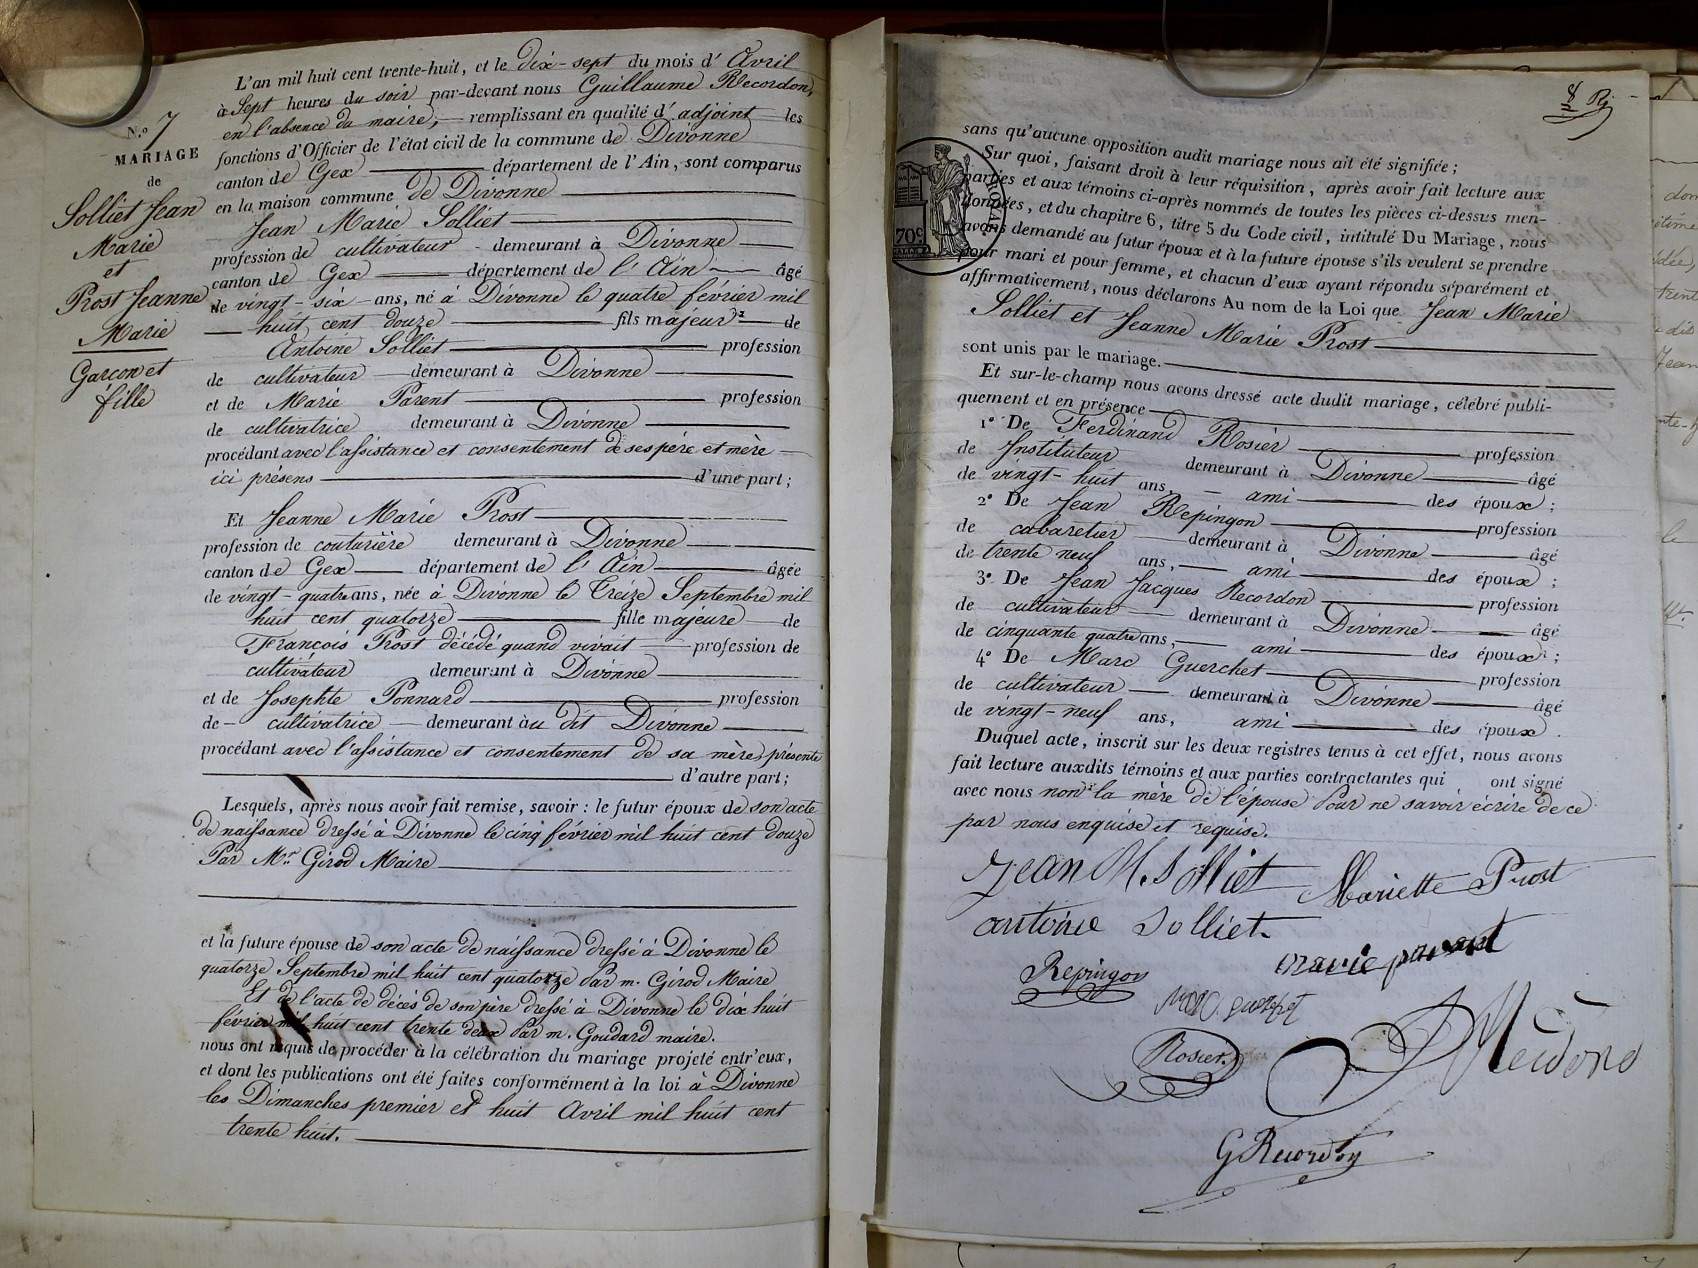 N.º 7
MARIAGE
de
Solliet Jean
Marie
et
Prost Jeanne
Marie
Garçon et
fille
L'an mil huit cent trente-huit, et le dix-sept du mois d'Avril
à Sept heures du soir par-devant nous Guillaume Recordon,
en l'absence du maire, remplissant en qualité d'adjoint les
fonctions d'Officier de l'état civil de la commune de Divonne
canton de Gex département de l'Ain, sont comparus
en la maison commune de Divonne
Jean Marie Solliet
profession de cultivateur demeurant à Divonne
canton de Gex département de l'Ain âgé
de vingt-six ans, né à Divonne le quatre février mil
huit cent douze fils majeur de
Antoine Solliet profession
de cultivateur demeurant à Divonne
et de Marie Parent profession
de cultivatrice demeurant à Divonne
procédant avec l'assistance et consentement de ses père et mère
ici présens d'une part;
Et Jeanne Marie Prost
profession de couturière demeurant à Divonne
canton de Gex département de l'Ain âgée
de vingt-quatre ans, née à Divonne le Treize Septembre mil
huit cent quatorze fille majeure de
François Prost décédé quand vivait profession de
cultivateur demeurant à Divonne
et de Josephte Ponnard profession
de cultivatrice demeurant au dit Divonne
procédant avec l'assistance et consentement de sa mère, présente
d'autre part;
Lesquels, après nous avoir fait remise, savoir : le futur époux de son acte
de naissance dressé à Divonne le cinq février mil huit cent douze
Par Mr. Girod Maire
et la future épouse de son acte de naissance dressé à Divonne le
quatorze Septembre mil huit cent quatorze Par m. Girod Maire
Et de l'acte de décès de son père dressé à Divonne le dix huit
février mil huit cent trente deux Par m. Goudard maire.
nous ont requis de procéder à la célébration du mariage projeté entr'eux,
et dont les publications ont été faites conformément à la loi à Divonne
les Dimanches premier et huit Avril mil huit cent
trente huit.
8
sans qu'aucune opposition audit mariage nous ait été signifiée ;
Sur quoi, faisant droit à leur réquisition, après avoir fait lecture aux
parties et aux témoins ci-après nommés de toutes les pièces ci-dessus men-
tionnées, et du chapitre 6, titre 5 du Code civil, intitulé Du Mariage, nous
avons demandé au futur époux et à la future épouse s'ils veulent se prendre
pour mari et pour femme, et chacun d'eux ayant répondu séparément et
affirmativement, nous déclarons Au nom de la Loi que Jean Marie
Solliet et Jeanne Marie Prost
sont unis par le mariage.
Et sur-le-champ nous avons dressé acte dudit mariage, célébré publi-
quement et en présence
1º De Ferdinand Rosier profession
de Instituteur demeurant à Divonne âgé
de vingt-huit ans, ami des époux ;
2º De Jean Repingon profession
de cabaretier demeurant à Divonne âgé
de trente neuf ans, ami des époux ;
3º De Jean Jacques Recordon profession
de cultivateur demeurant à Divonne âgé
de cinquante quatre ans, ami des époux ;
4º De Marc Guerchet profession
de cultivateur demeurant à Divonne âgé
de vingt-neuf ans, ami des époux.
Duquel acte, inscrit sur les deux registres tenus à cet effet, nous avons
fait lecture auxdits témoins et aux parties contractantes qui ont signé
avec nous non la mère de l'épouse Pour ne savoir écrire de ce
par nous enquise et requise.
70c
Jean M. Solliet Mariette Prost
antoine Solliet
marie parant
Repingon
marc guerchet
Rosier
G Recordon